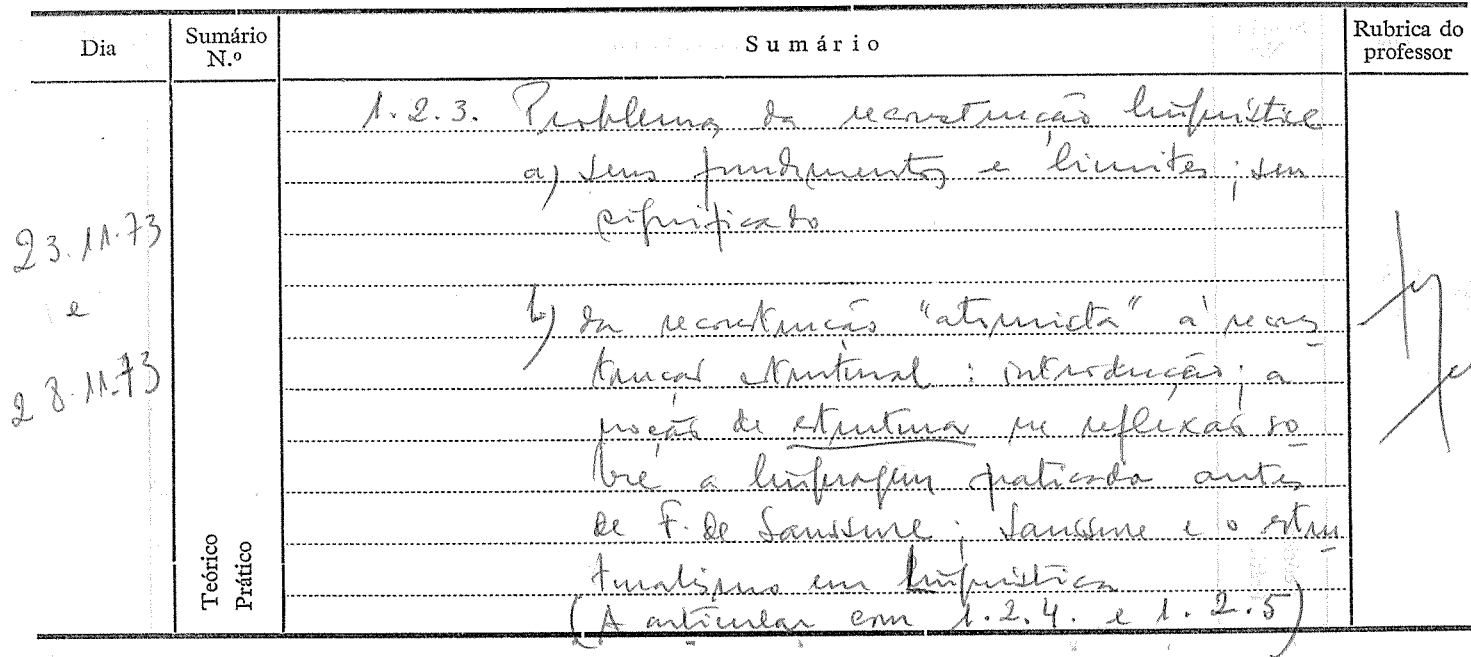 Dia
Sumário N.º
Sumário
Rubrica do professor
1.2.3. Problemas da reconstrução linguística
a) seus fundamentos e limites; seu
significado
23.11.73
e
28.11.73
b) da reconstrução "atomista" à recons
trução estrutural: introdução; a
noção de estrutura na reflexão so
bre a linguagem praticada antes
de F. de Saussure; Saussure e o estru
turalismo em Linguística
(A articular com 1.2.4. e 1.2.5)
Teórico
Prático